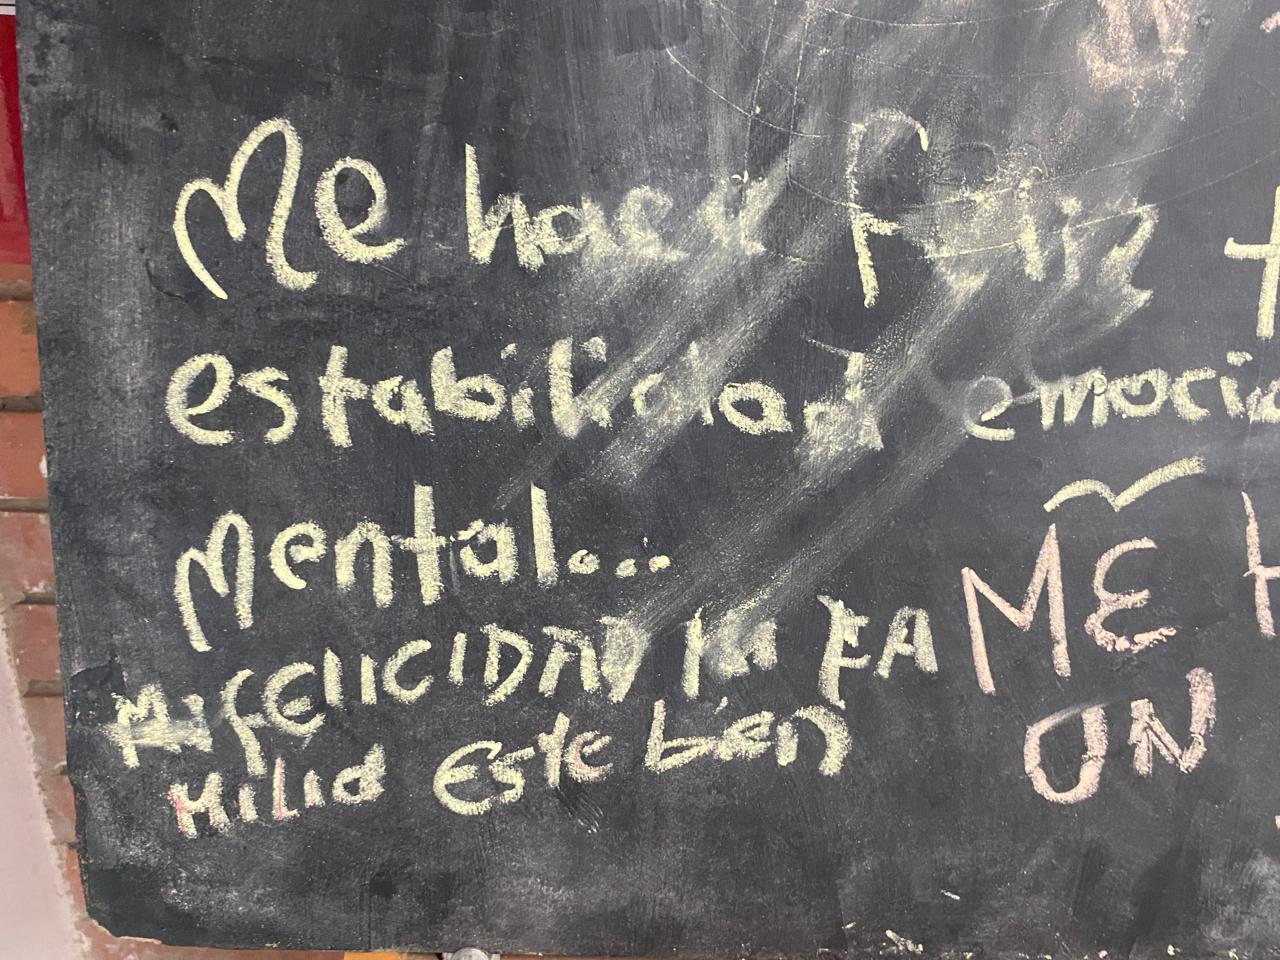 Me hace feliz t
estabilidad emocio
Mental...
Mi FELICIDAD
MI FA
MiLia Este bien
ME H
UN